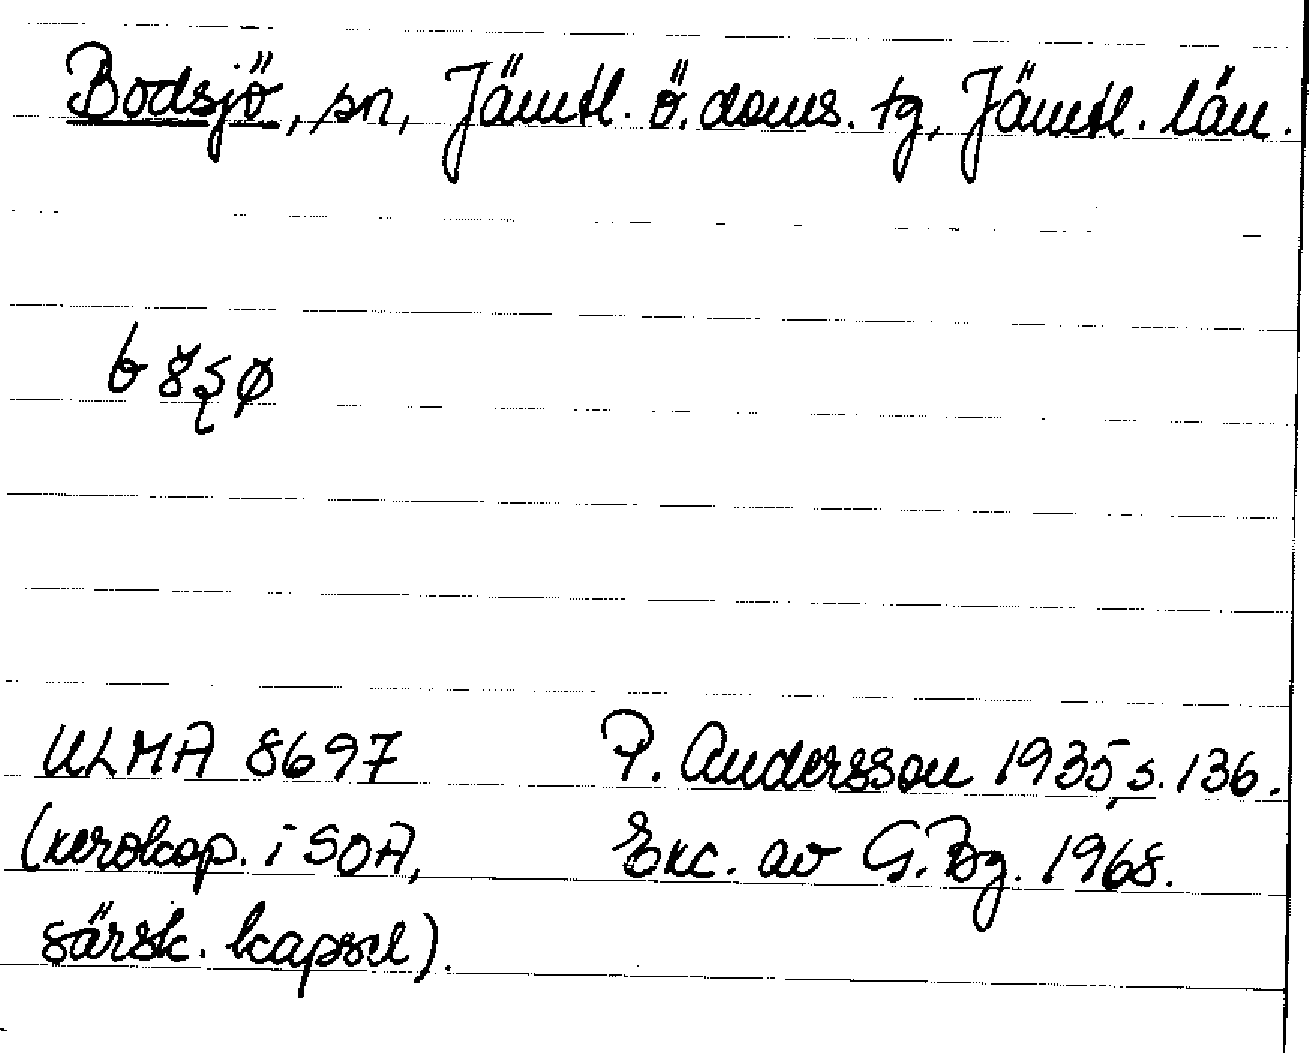 Bodsjö, sn, Jämtl. ö. doms. tg, Jämtl. län.
ULMA 8697 P. Andersson 1935, s. 136.
(xerokop. i SOA, Exc. av G. Bg. 1968.
särsk. kapsel).